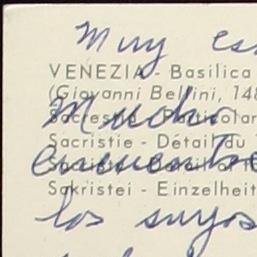 Muy es
VENEZIA - Basilica
(Giovanni Bellini, 148
Mucho
Sacrestia - Particolar
Sacristie - Détail du T
encuentre
Sakristei - Einzelheit
los suyos